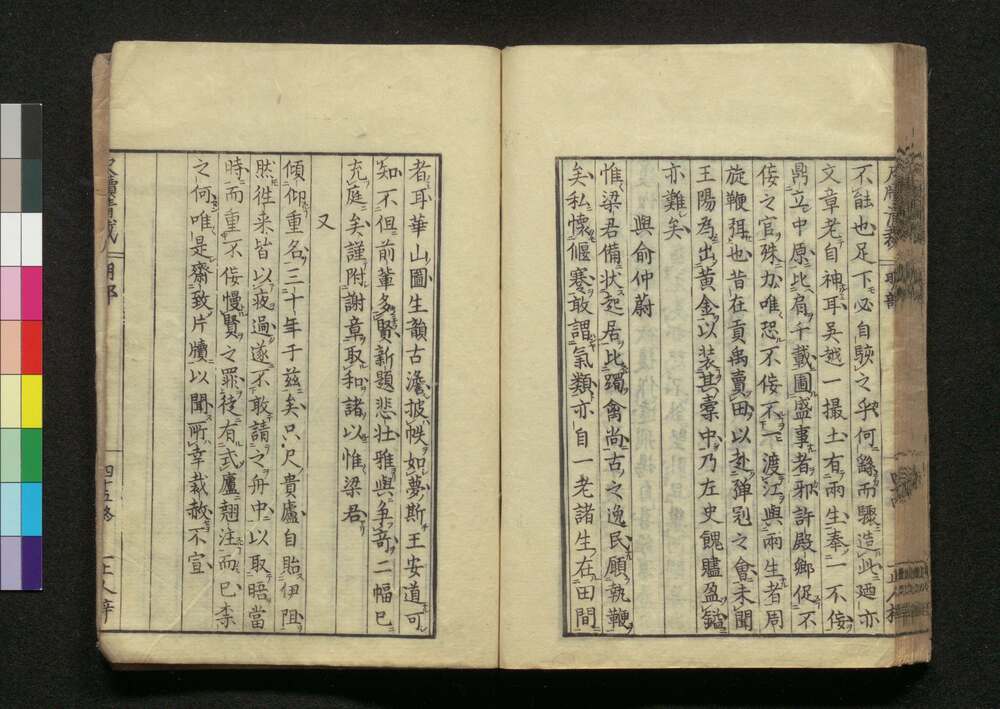 不能也足下必自駭之乎何繇而驟造此廼亦
文章老自神耳吳越一撮土有兩生奉一不佞
鼎立中原比肩千載圖盛事者邪許殿卿促不
佞之官殊力唯恐不佞不渡江與兩生者周
旋鞭弭也昔在貢禹賣田以赴彈冠之會未聞
王陽為出黃金以装其橐中乃左史餽贐盈鎰
亦難矣
與俞仲蔚
惟梁君備状起居比蠲禽尚古之逸民願執鞭
矣私懷偃蹇敢謂氣類亦自一老諸生在田間
者耳華山圖生韻古澹披帙如夢斯王安道可
知不但前輩多賢新題悲壮雅與争奇二幅已
充庭矣謹附謝章取和諸以惟梁君
又
傾仰重名三十年于兹矣只尺貴廬自貽伊阻
然徃来皆以疲過遂不敢請之舟中以取晤當
時而重不佞慢賢之罪徒有式廬翹注而已李
之何唯是齋致片牘以聞所幸裁赦不宣
四十五